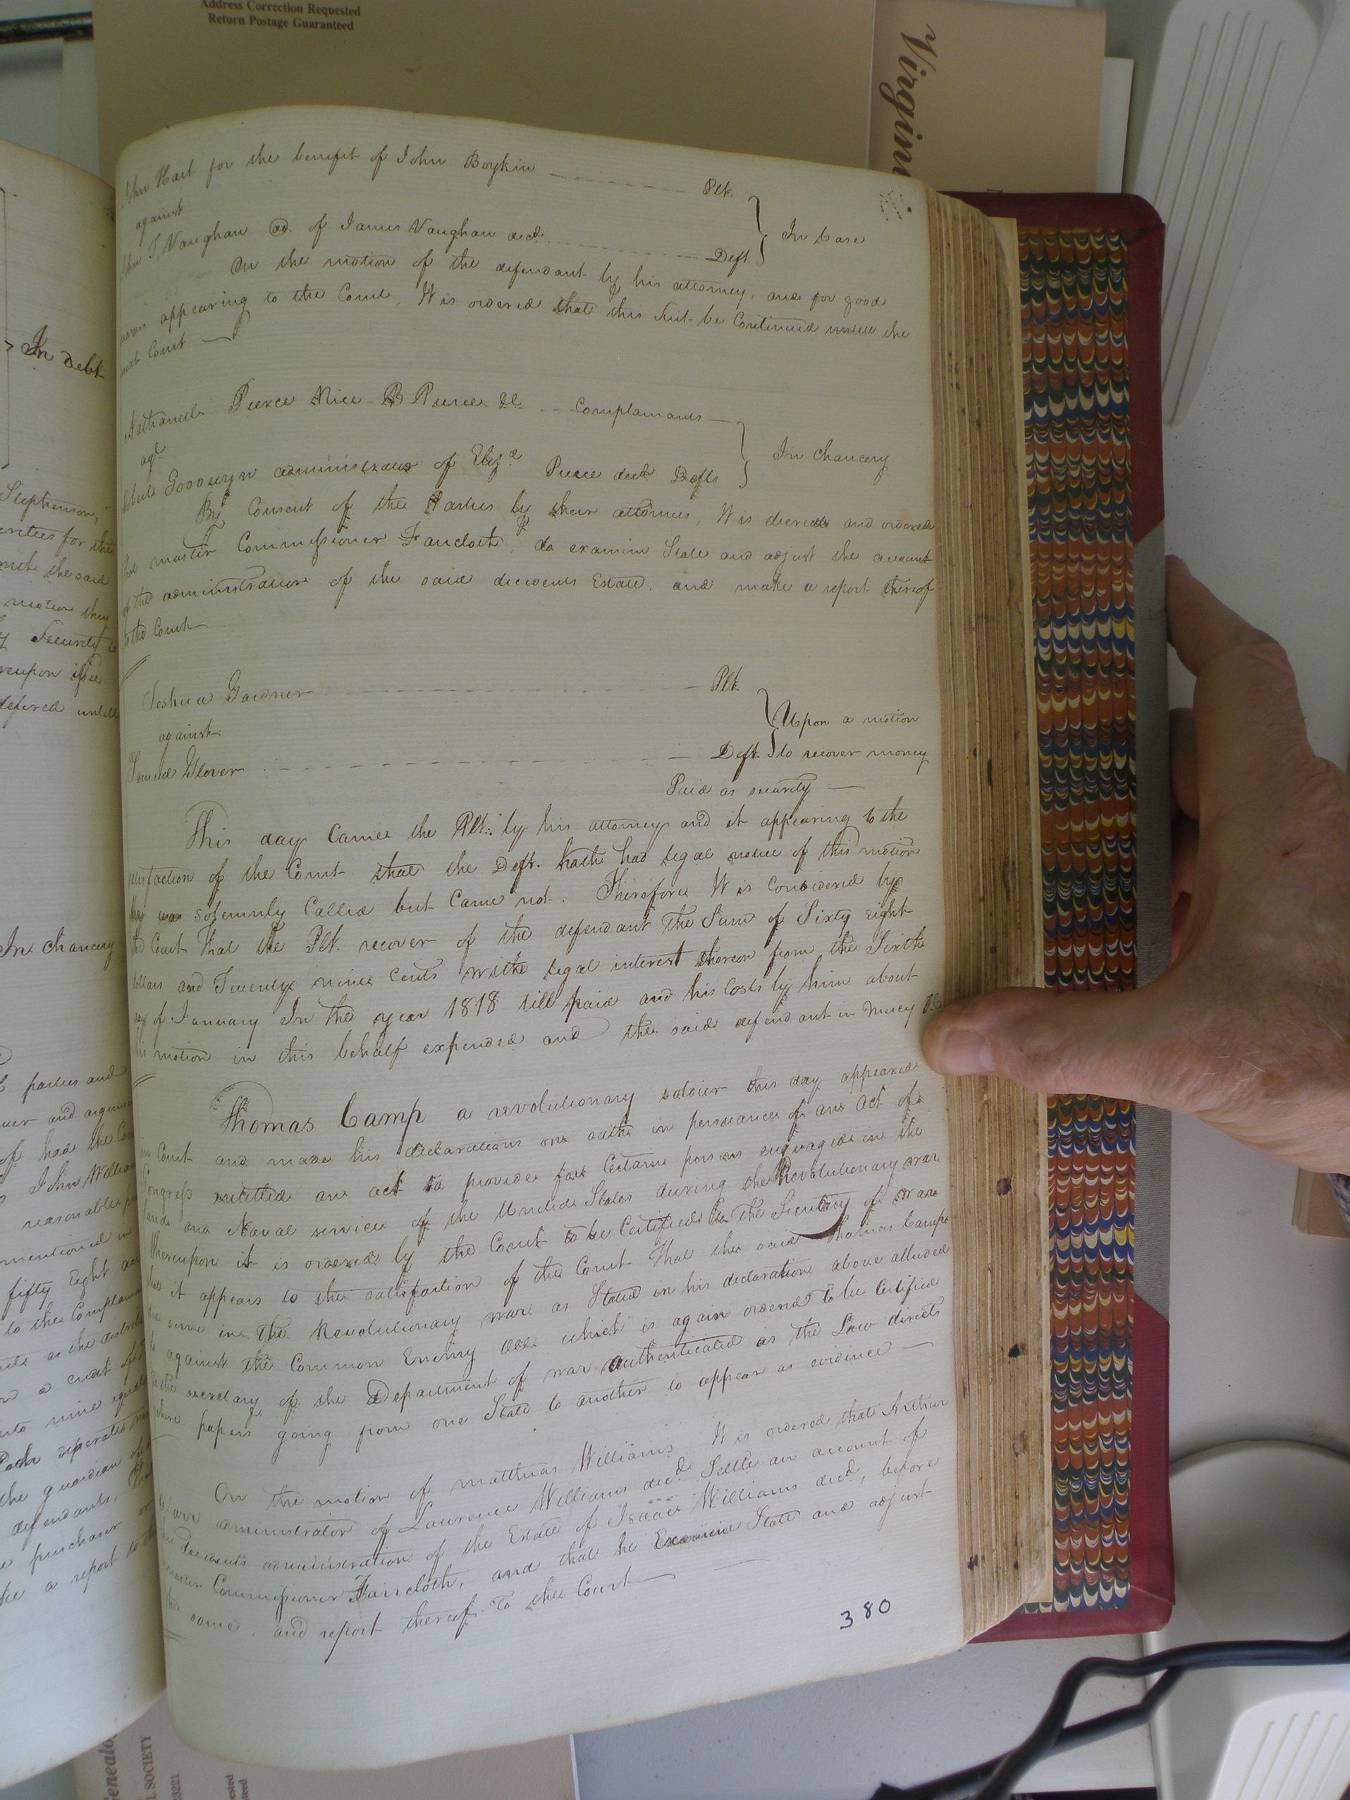 Address Correction Requested
Return Postage Guaranteed
Virgin
Hart for the benefit of John Boykin Plt.
against
In Case
T Vaughan ad. of James Vaughan decd. Deft.
On the motion of the defendant by his attorney, and for good
appearing to the Court, It is ordered that this suit be Continued untill the
next Court
Pierce Rice B Pierce &c Complainants
agt
In Chancery
Goodwyn administrator of Pierce decd Defts
By Consent of the Parties by their attornies, It is decreed and ordered
that master Commissioner Faircloth do examine State and adjust the account
of the administration of the said decedents Estate, and make a report thereof
to the Court
Joshua Gardner Plt.
against
Upon a motion
Samuel Glover Deft. to recover money
Paid as security
This day Came the Plt. by his attorney and it appearing to the
satisfaction of the Court that the Deft. hath had legal notice of this motion
they was Solemnly Called but Came not. Therefore It is Considered by
the Court that the Plt. recover of the defendant the Sum of Sixty eight
dollars and Twenty nine Cents with legal interest thereon from the Sixth
day of January In the year 1818 till paid and his Costs by him about
his motion in this behalf expended and the said defendant in Mercy &c
Thomas Camp a revolutionary soldier this day appeared
in Court and made his declaration on oath in persuance of an Act of
Congress entitled an act to provide for Certain persons engaged in the
land and Naval service of the United States during the Revolutionary war
Whereupon it is ordered by the Court to be Certified to the Secretary of war
that it appears to the satisfaction of the Court that the said Thomas Camp
did serve in the Revolutionary war as Stated in his declaration above alluded
to against the Common Enemy which is again ordered to be Certified
to the secretary of the Department of war authenticated as the Law directs
where papers going from one State to another to appear as evidence
On the motion of Matthias Williams It is ordered that Arthur
administrator of Lawrence Williams decd. Settle an account of
decedents administration of the Estate of Isaac Williams decd, before
master Commissioner Faircloth, and that he Examine State and adjust
the same, and report thereof To the Court
380
In debt
Stephenson,
for the
the said
motion they
Security
defered untill
In Chancery
parties and
John William
reasonable
mentioned in
fifty Eight
to the Complain
as the
a credit
into nine equal
Each
the guardian of
defendants,
purchaser
a report to
Genealo
L SOCIETY
0221